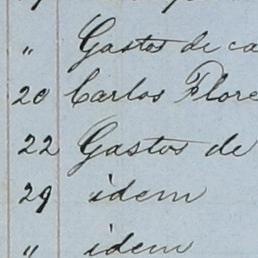 " Gastos de ca
20 Carlos Flore
22 Gastos de
29 idem
" idem